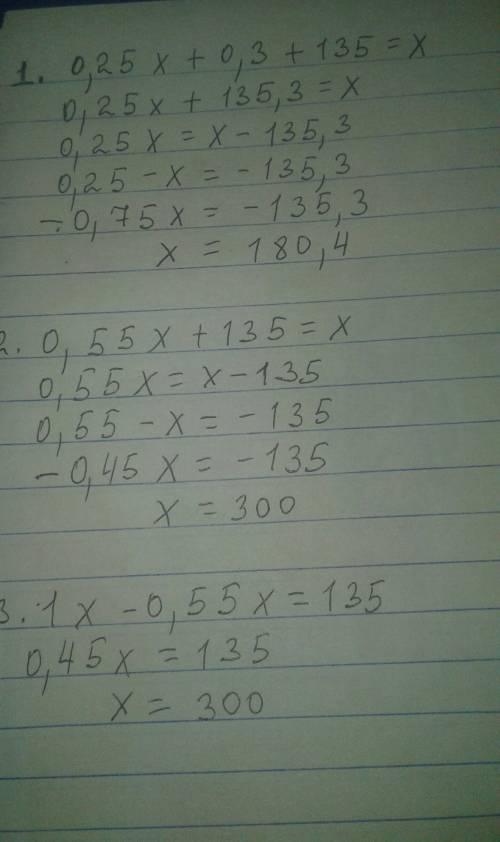 1. 0,25 x + 0,3 + 135 = x
0,25x + 135,3 = x
0,25 x = x - 135,3
0,25 - x = - 135,3
- 0,75x = - 135,3
x = 180,4
2. 0,55x + 135 = x
0,55x = x - 135
0,55 - x = - 135
- 0,45x = - 135
x = 300
3. 1x - 0,55x = 135
0,45x = 135
x = 300